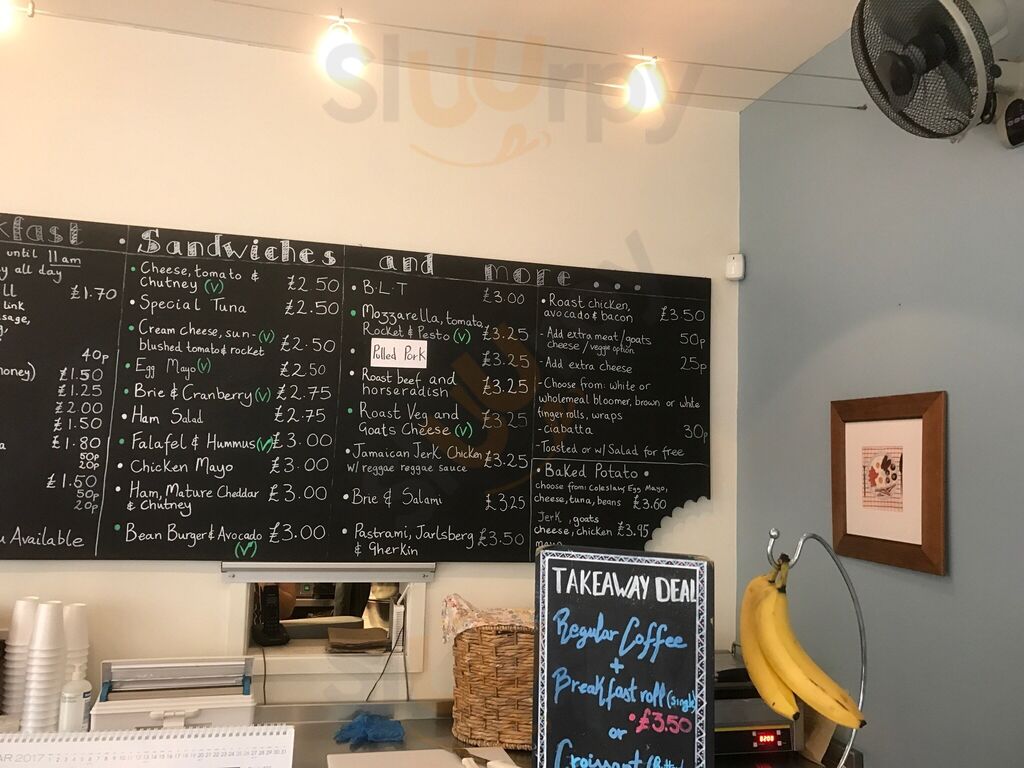 Sluurpy
kfast
until 11am
y all day
ll £1.70
link
sage,
40p
oney) £1.50
£1.25
£2.00
£1.50
£1.80
50p
20p
£1.50
50p
20p
u Available
• Sandwiches and more ...
• Cheese, tomato & Chutney (v) £2.50
• Special Tuna £2.50
• Cream cheese, sun-(v)
blushed tomato & rocket £2.50
• Egg Mayo (v) £2.50
• Brie & Cranberry (v) £2.75
• Ham Salad £2.75
• Falafel & Hummus (v) £3.00
• Chicken Mayo £3.00
• Ham, Mature Cheddar
& Chutney £3.00
• Bean Burger & Avocado £3.00
(v*)
• B.L.T £3.00
• Mozzarella, tomato,
Rocket & Pesto (v) £3.25
• Pulled Pork £3.25
• Roast beef and
horseradish £3.25
• Roast Veg and
Goats Cheese (v) £3.25
• Jamaican Jerk Chicken £3.25
w/ reggae reggae sauce
• Brie & Salami £3.25
• Pastrami, Jarlsberg £3.50
& gherkin
• Roast chicken,
avocado & bacon £3.50
- Add extra meat/goats 50p
cheese/veggie option
- Add extra cheese 25p
- Choose from: white or
wholemeal bloomer, brown or white
finger rolls, wraps
- ciabatta 30p
- Toasted or w/ Salad for free
• Baked Potato •
choose from: Coleslaw, Egg Mayo,
cheese, tuna, beans £3.60
Jerk, goats
cheese, chicken £3.95
mayo
TAKEAWAY DEAL
Regular Coffee
+
Breakfast roll (single)
• £3.50
or
Croissant
AR 2017